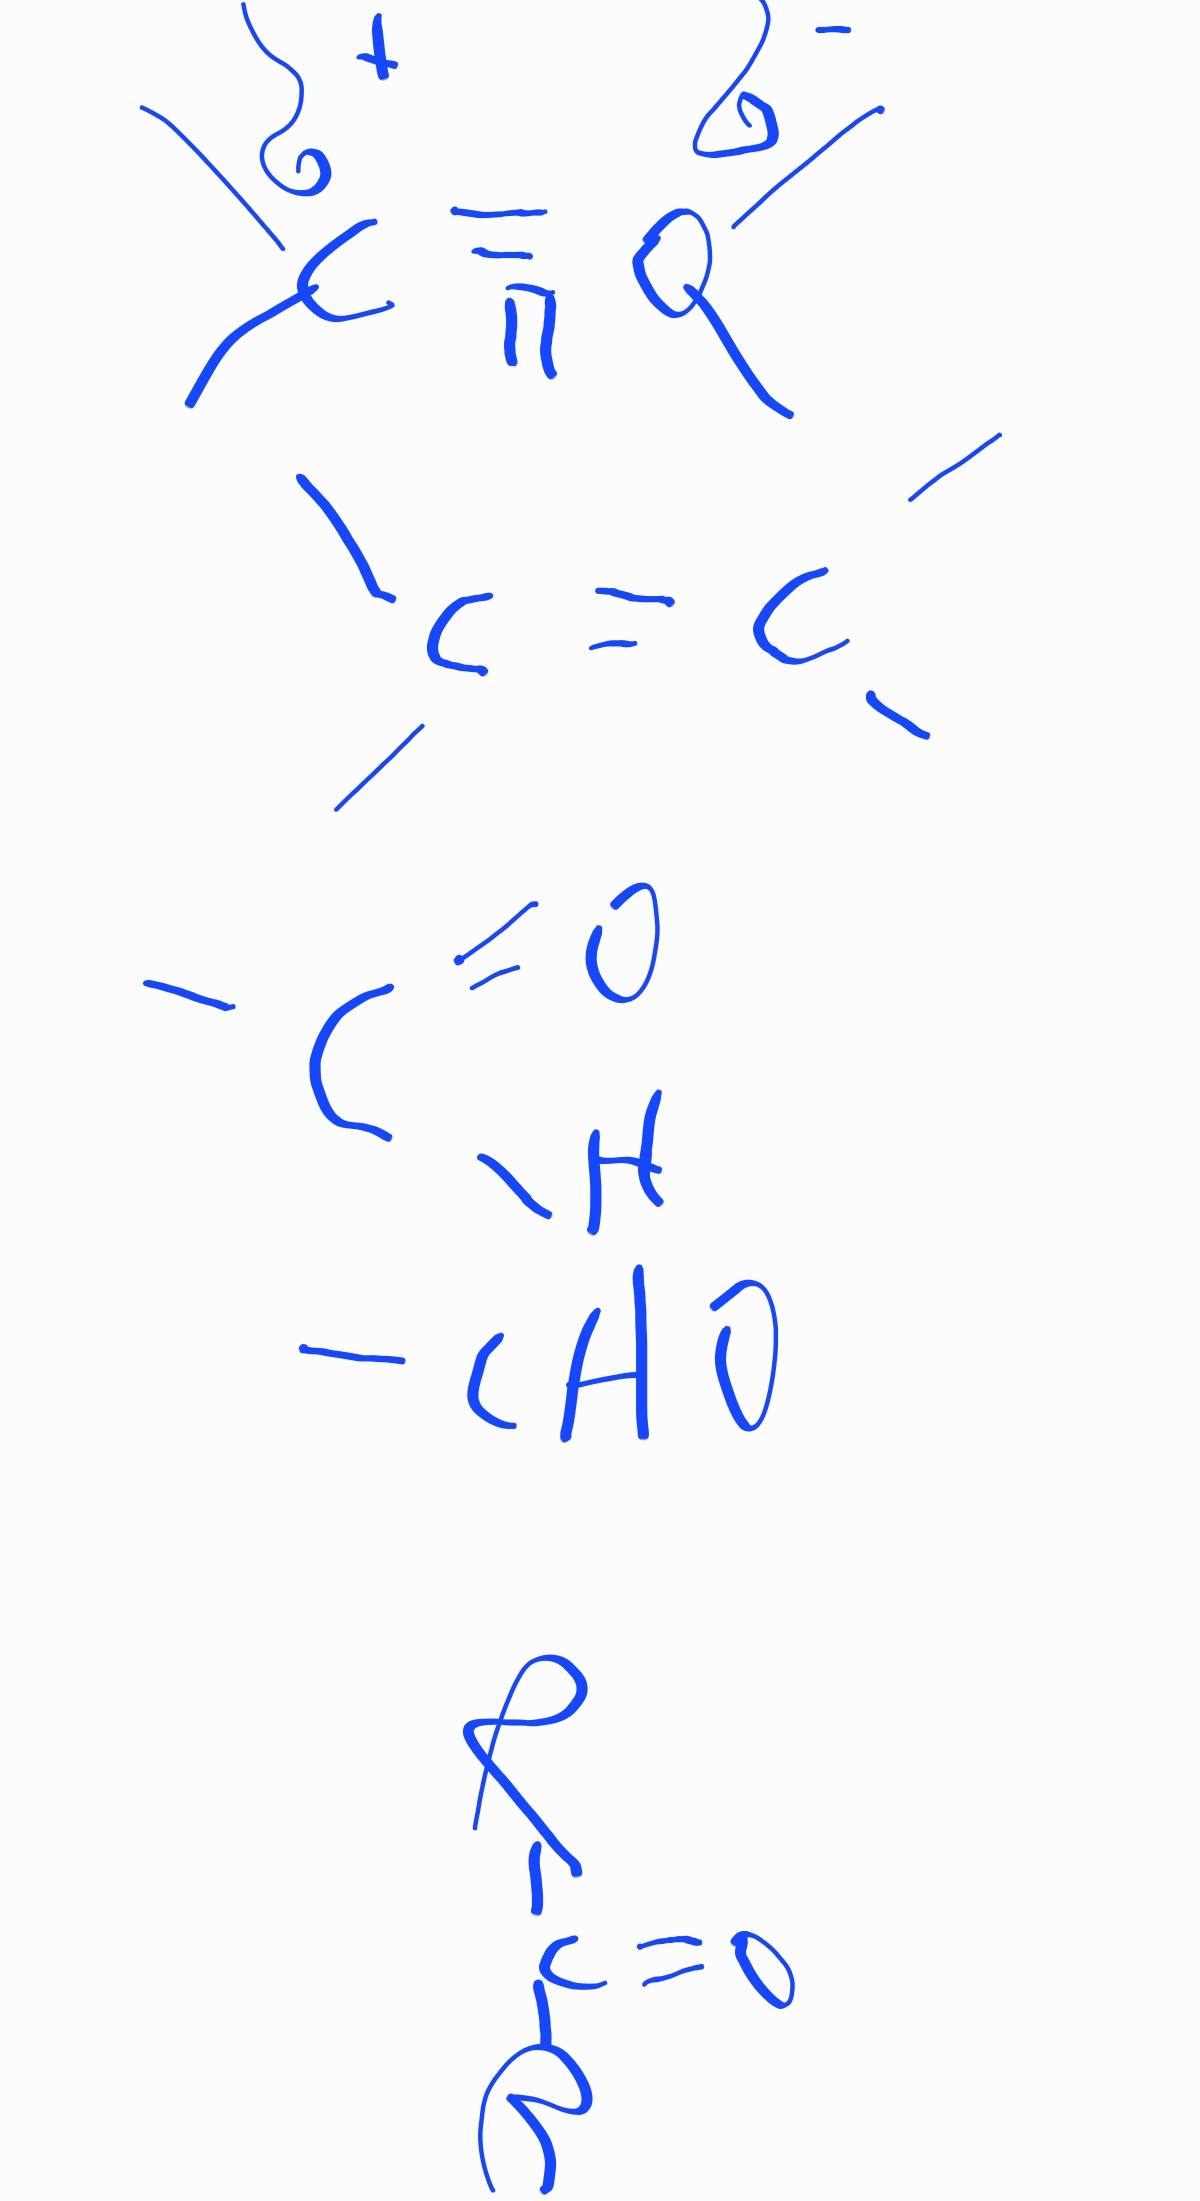 δ + δ -
C = O
π
C = C
- C = O
\ H
- CHO
R
|
C = O
|
R